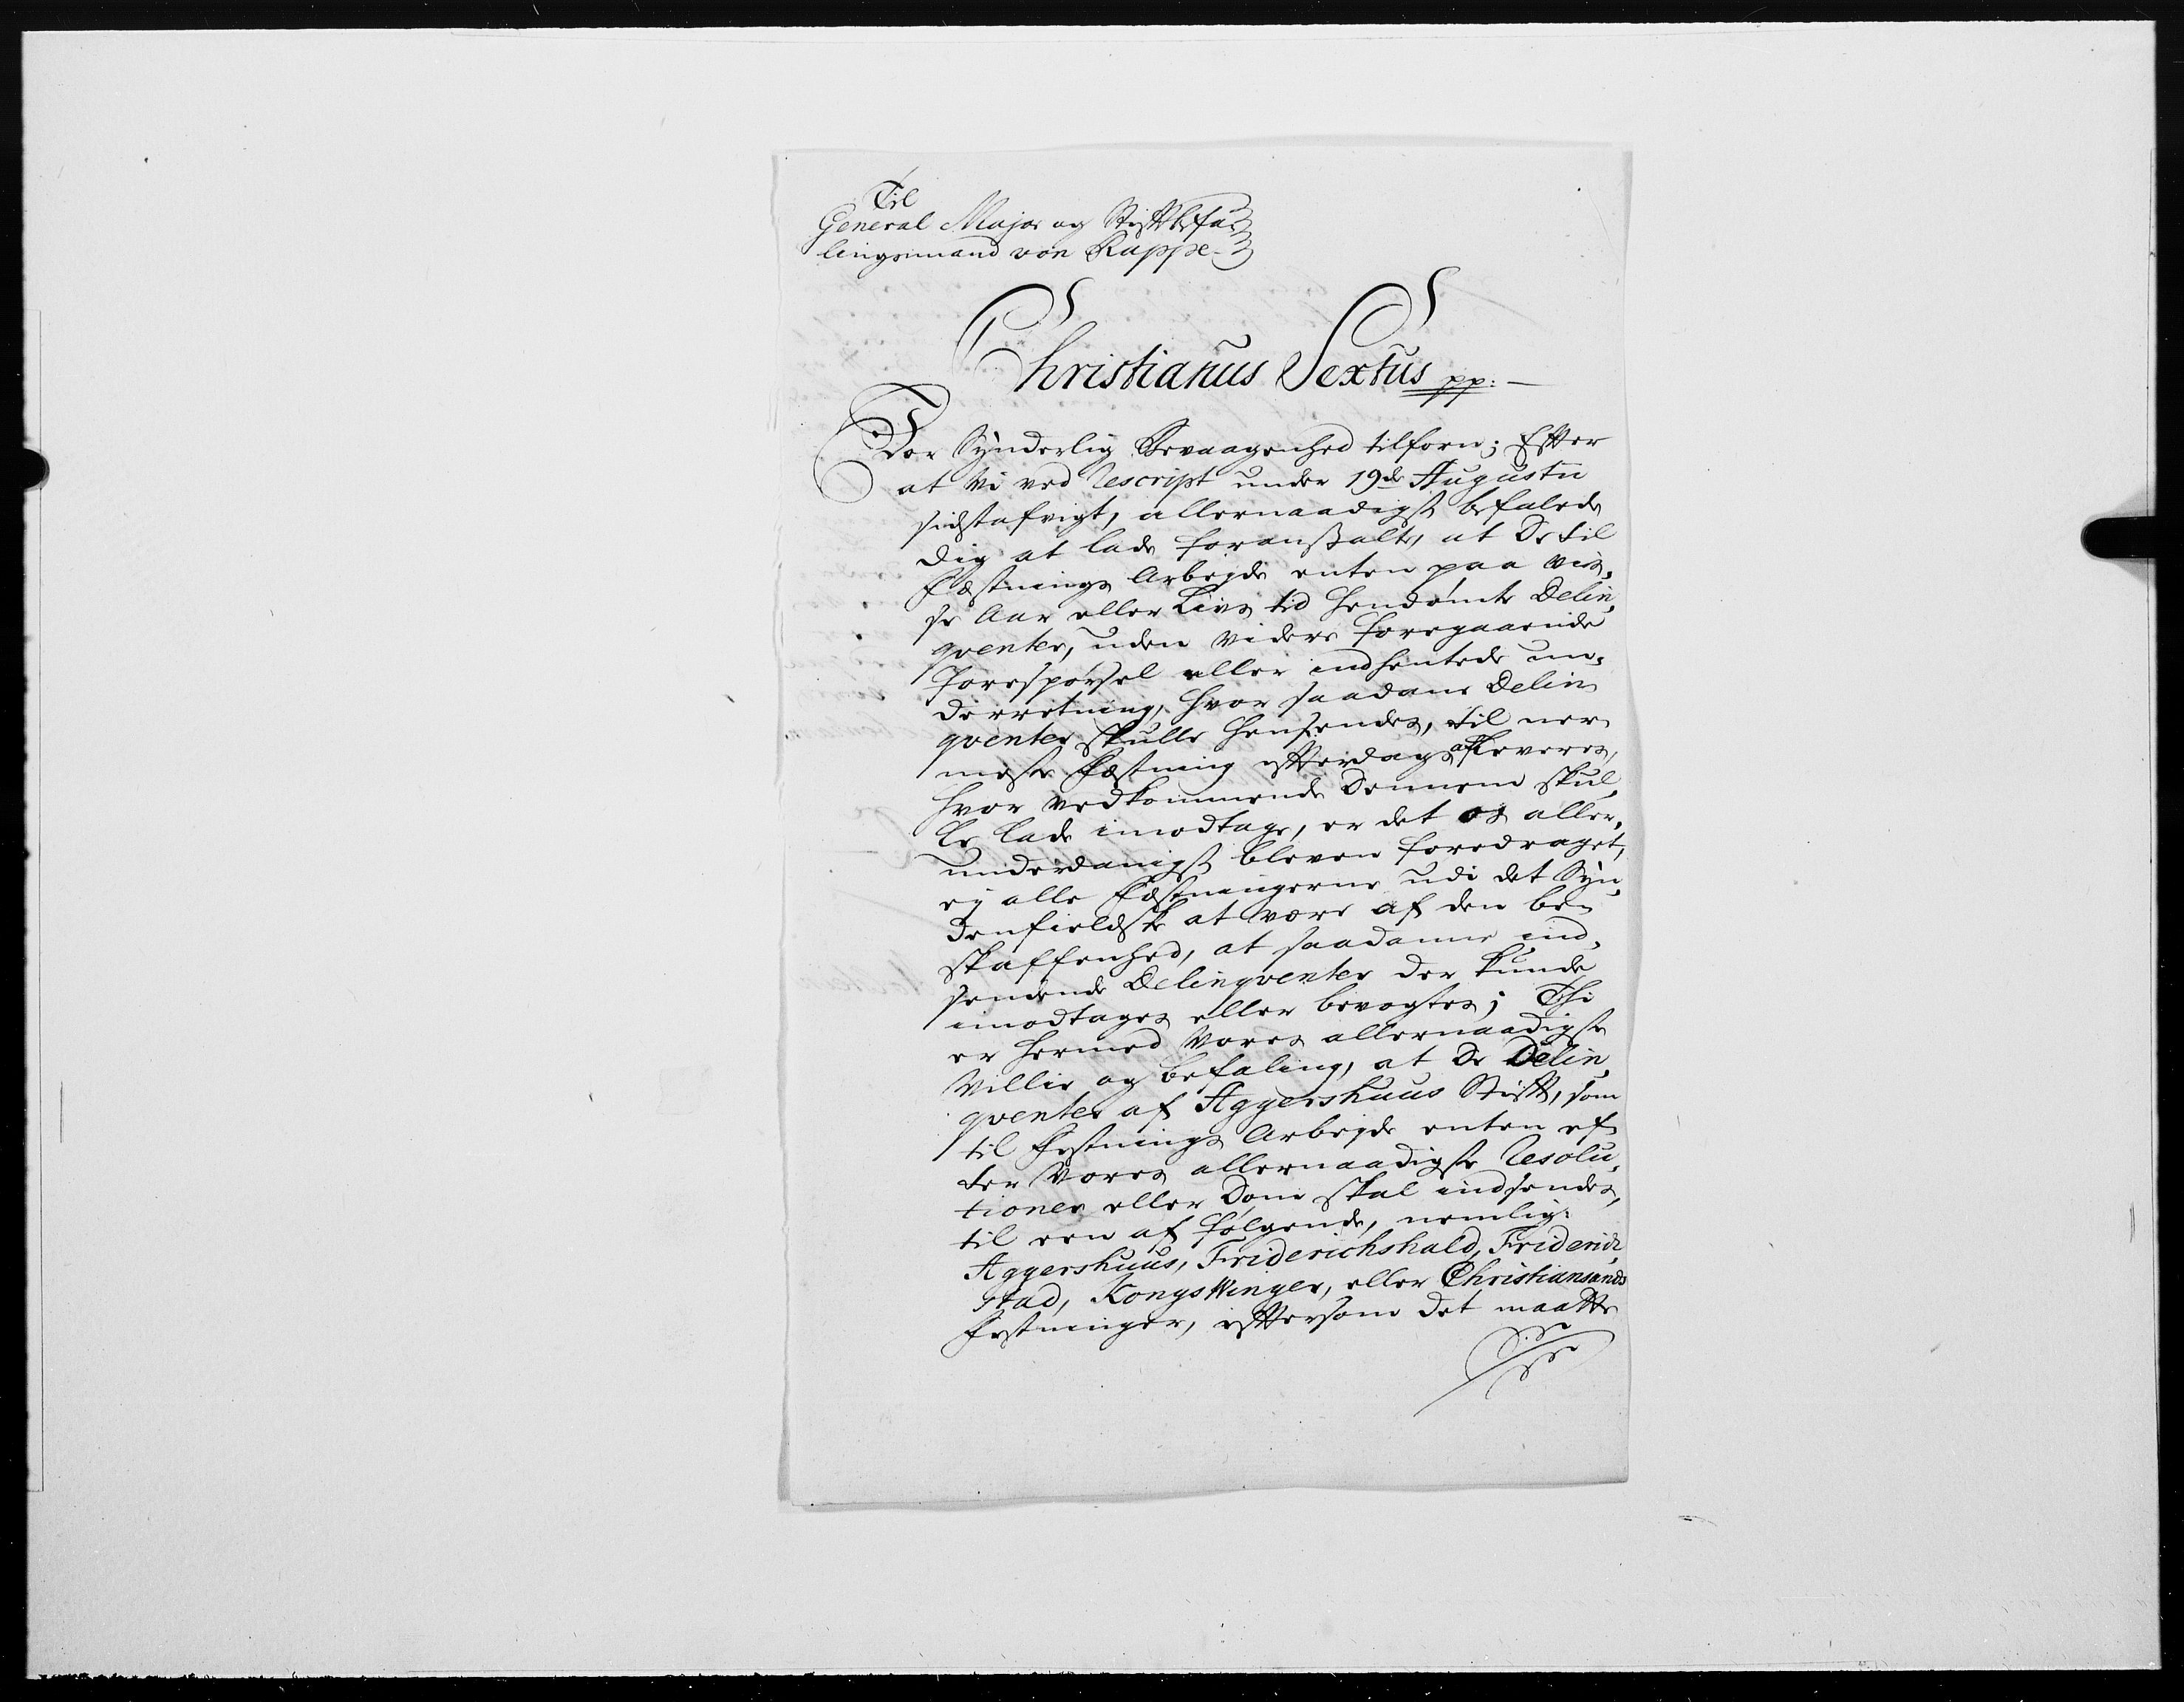 Til
General Major og Stiftbefa-
lingsmand von Rappe
Christianus Sextus pp:
Vor Synderlig Bevaagenhed tilforn; Efter
at Vi ved Rescript under 19de Augustii
sidstafvigt, allernaadigst befalede
dig at lade foranstalte, at De til
Fæstnings Arbejde enten paa vis-
se Aar eller Livs tid hendømte Delin-
qventer, uden videre foregaaende
Forespørsel eller indhentede un-
derretning, hvor saadane Delin-
qventer skulle hensendes, til ner-
meste Fæstning efterdags afleveres,
hvor vedkommende Dennem skul-
le lade imodtage, er det os aller-
underdanigst bleven foredraget,
ej alle Fæstningerne udi det Syn-
denfieldske at være af den be-
skaffenhed, at saadanne ind-
sendende Delinqventer der kunde
imodtages eller bevogtes; Thi
er hermed Vores allernaadigste
Villie og befaling, at De Delin-
qventer af Aggershuus Stift, som
til Festnings Arbejde enten ef-
ter Vores allernaadigste Resolu-
tioner eller Dom skal indsendes,
til een af følgende, nemlig:
Aggershuus, Friderichshald, Friderich-
stad, KongsWinger, eller Christiansands
Festninger, eftersom det maatte